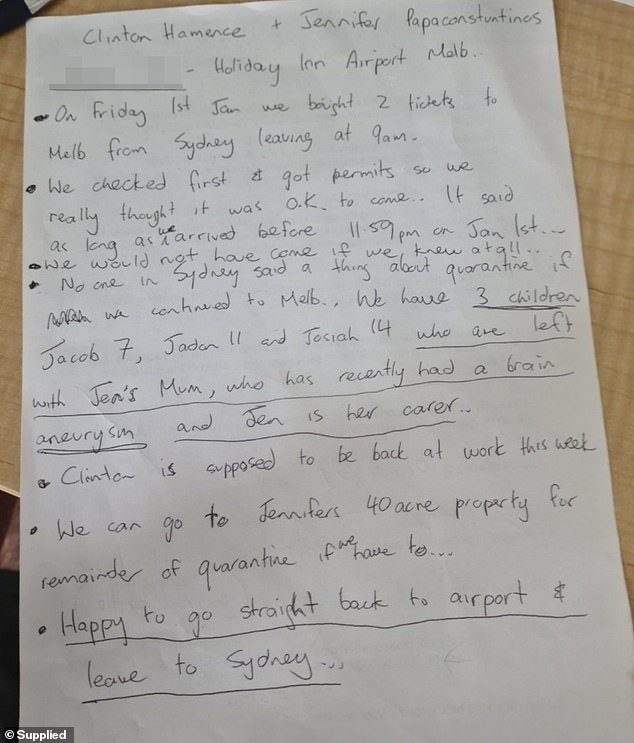 Clinton Hamence + Jennifer Papaconstuntinos
- Holiday Inn Airport Melb..
• On Friday 1st Jan we bought 2 tickets to
Melb from Sydney leaving at 9am.
• We checked first & got permits so we
really thought it was O.K. to come.. It said
as long as we arrived before 11.59pm on Jan 1st...
• We would not have come if we knew at all..
• No one in Sydney said a thing about quarantine if
we continued to Melb.. We have 3 children
Jacob 7, Jadon 11 and Josiah 14 who are left
with Jen's Mum, who has recently had a brain
aneurysm and Jen is her carer..
• Clinton is supposed to be back at work this week
• We can go to Jennifers 40 acre property for
remainder of quarantine if we have to...
• Happy to go straight back to airport &
leave to Sydney...
© Supplied